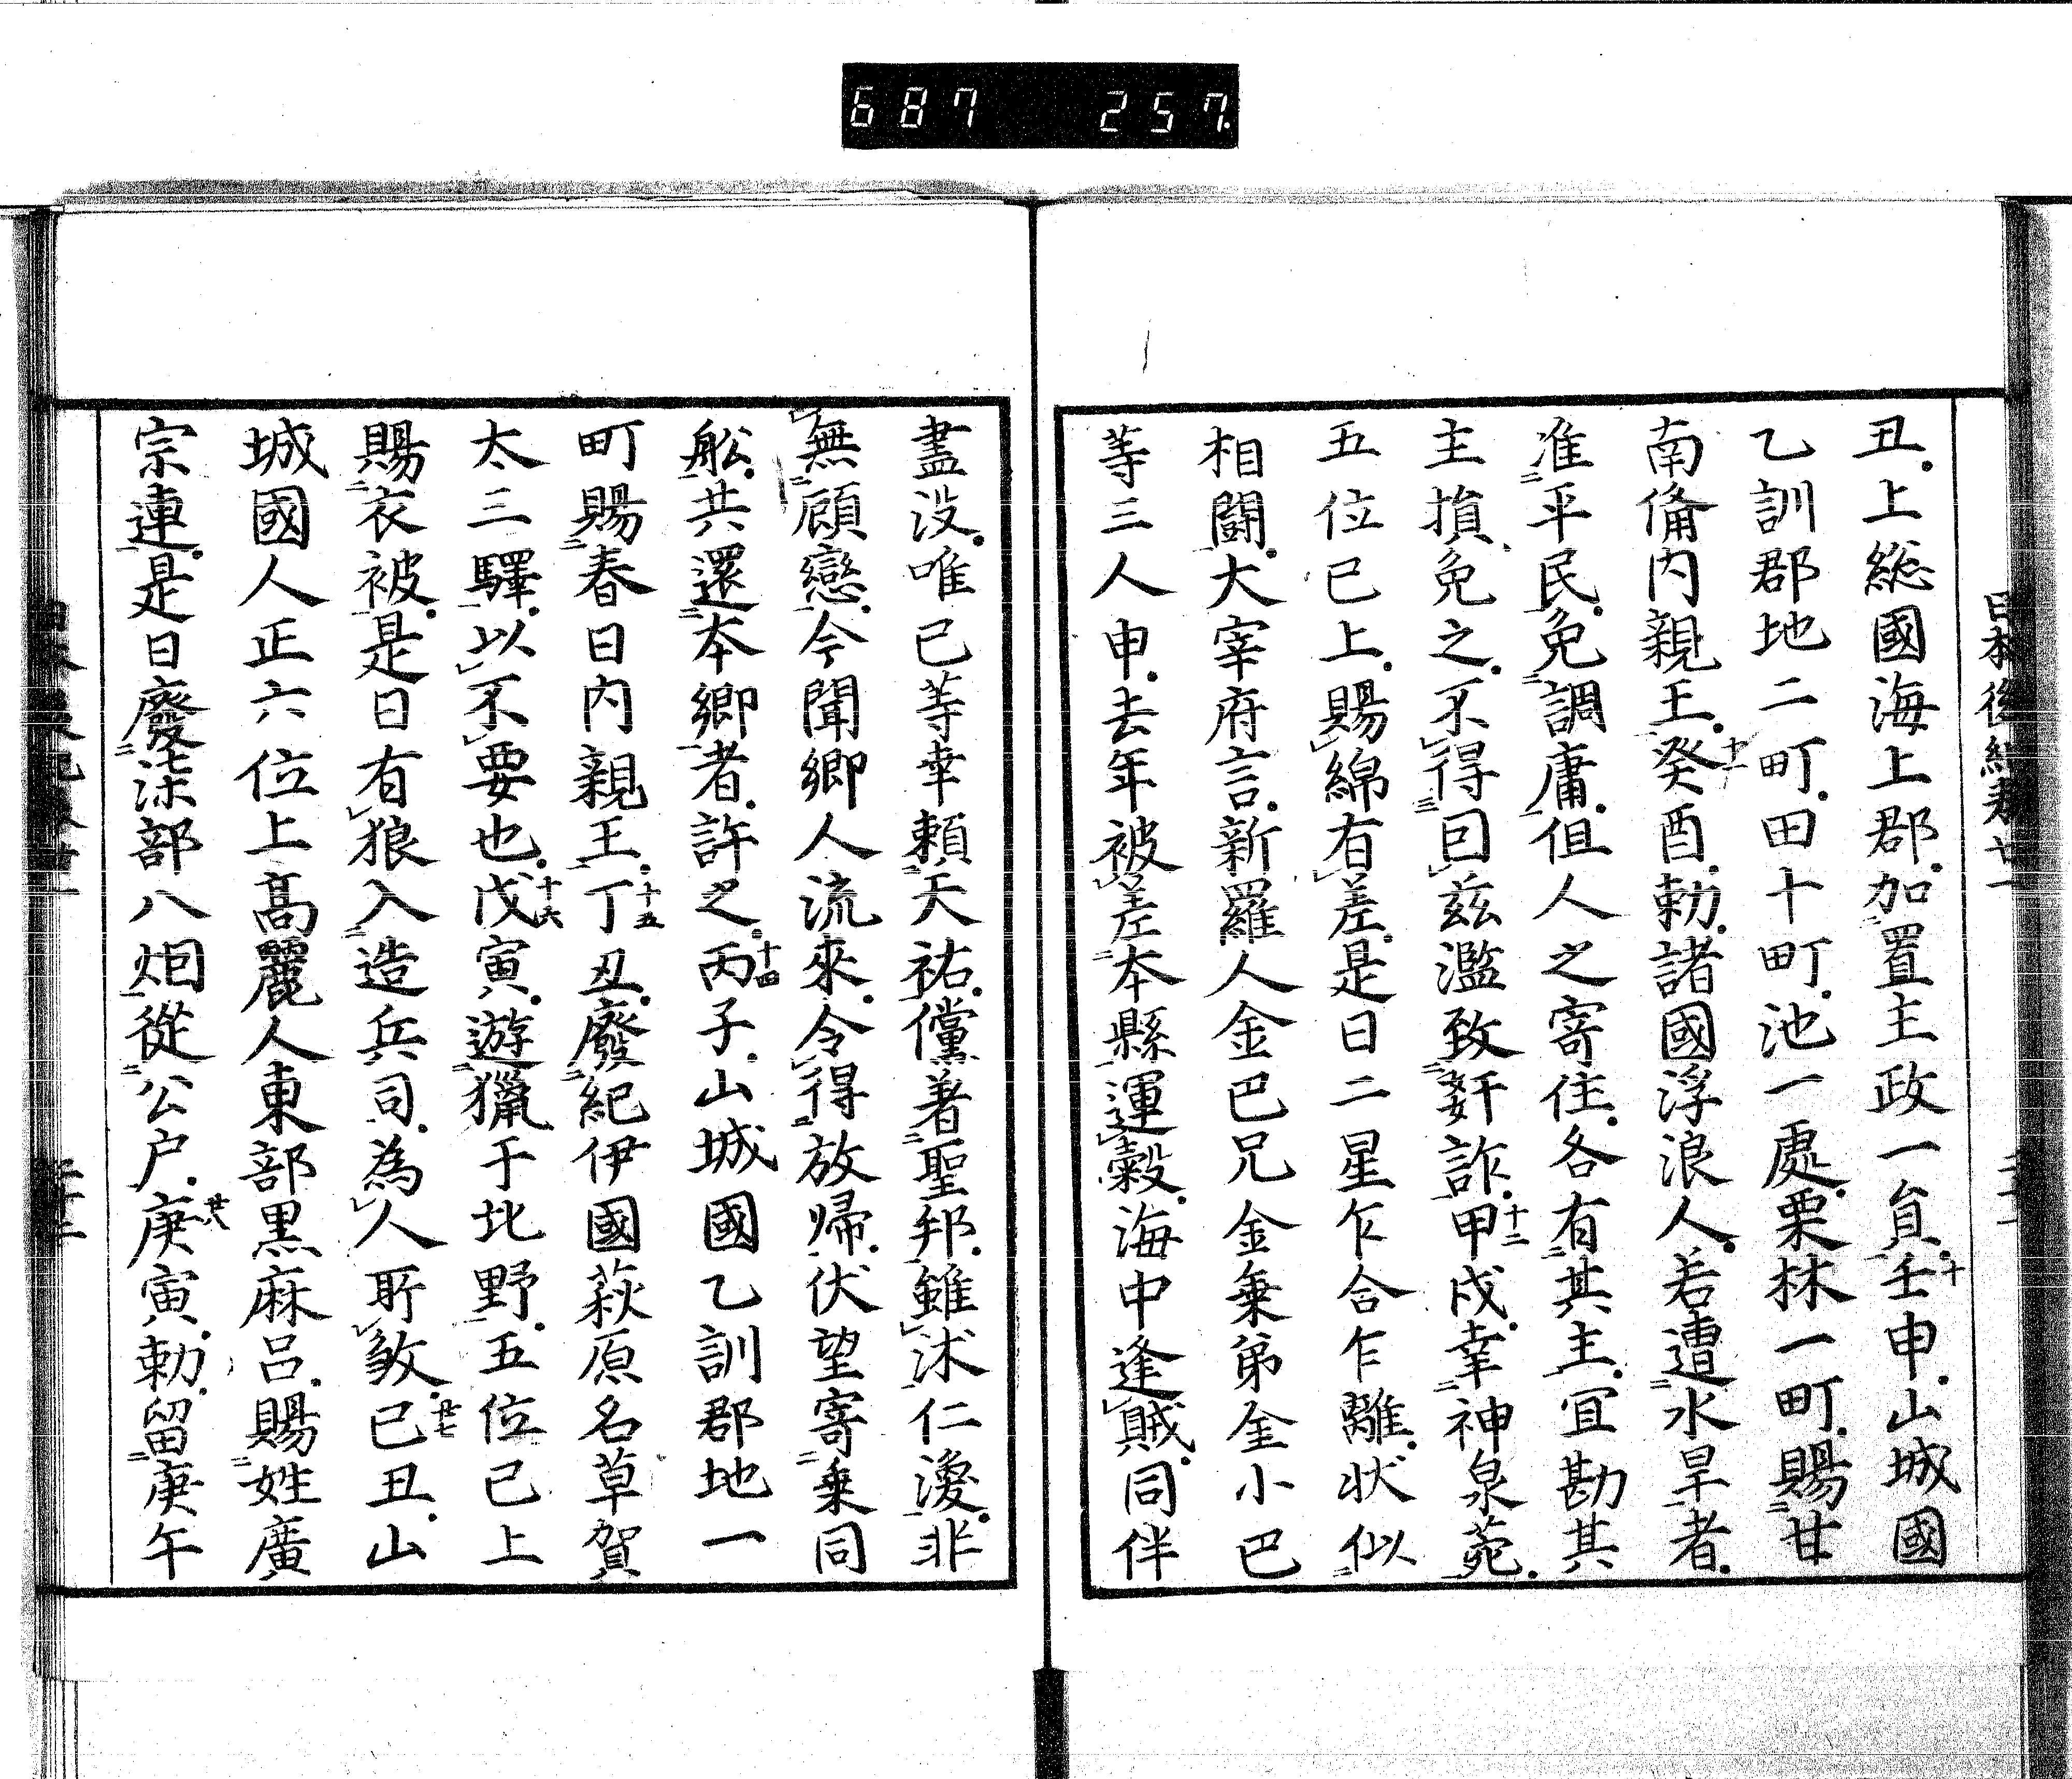 687 257
日本後紀卷廿一
丑上総國海上郡加置主政一員壬申山城國
乙訓郡地二町田十町池一處栗林一町賜甘
南備内親王癸酉勅諸國浮浪人若遭水旱者
准平民免調庸但人之寄住各有其主宜勘其
主損免之不得因茲濫致姧詐甲戌幸神泉菀
五位已上賜綿有差是日二星乍合乍離状似
相闘大宰府言新羅人金巴兄金乗弟金小巴
等三人申去年被差本縣運穀海中逢賊同伴
盡没唯已等幸頼天祐儻著聖邦雖沐仁渙非
無顧戀今聞郷人流來令得放帰伏望寄乗同
舩共還本郷者許之丙子山城國乙訓郡地一
町賜春日内親王丁丑廢紀伊國萩原名草賀
太三驛以不要也戊寅遊獵于北野五位已上
賜衣被是日有狼入造兵司為人所敓已丑山
城國人正六位上高麗人東部黒麻呂賜姓廣
宗連是日廢漆部八烟從公户庚寅勅留庚午